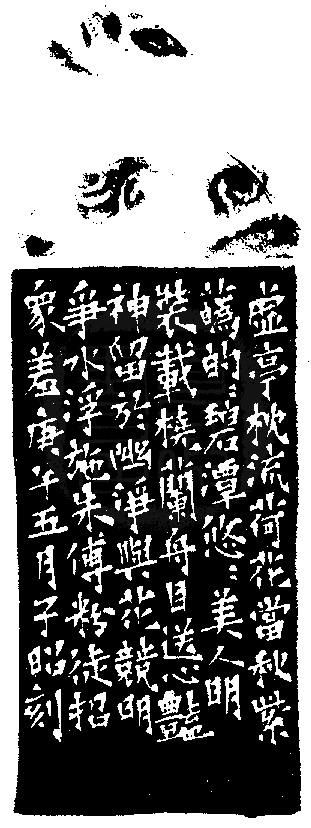 虚亭枕流荷花當秋紫
蘤的〻碧潭悠〻美人明
裝載橈蘭舟目送心豔
神留於幽淨與花競明
爭水浮施朱傅粉徒招
衆羞庚午五月子昭刻